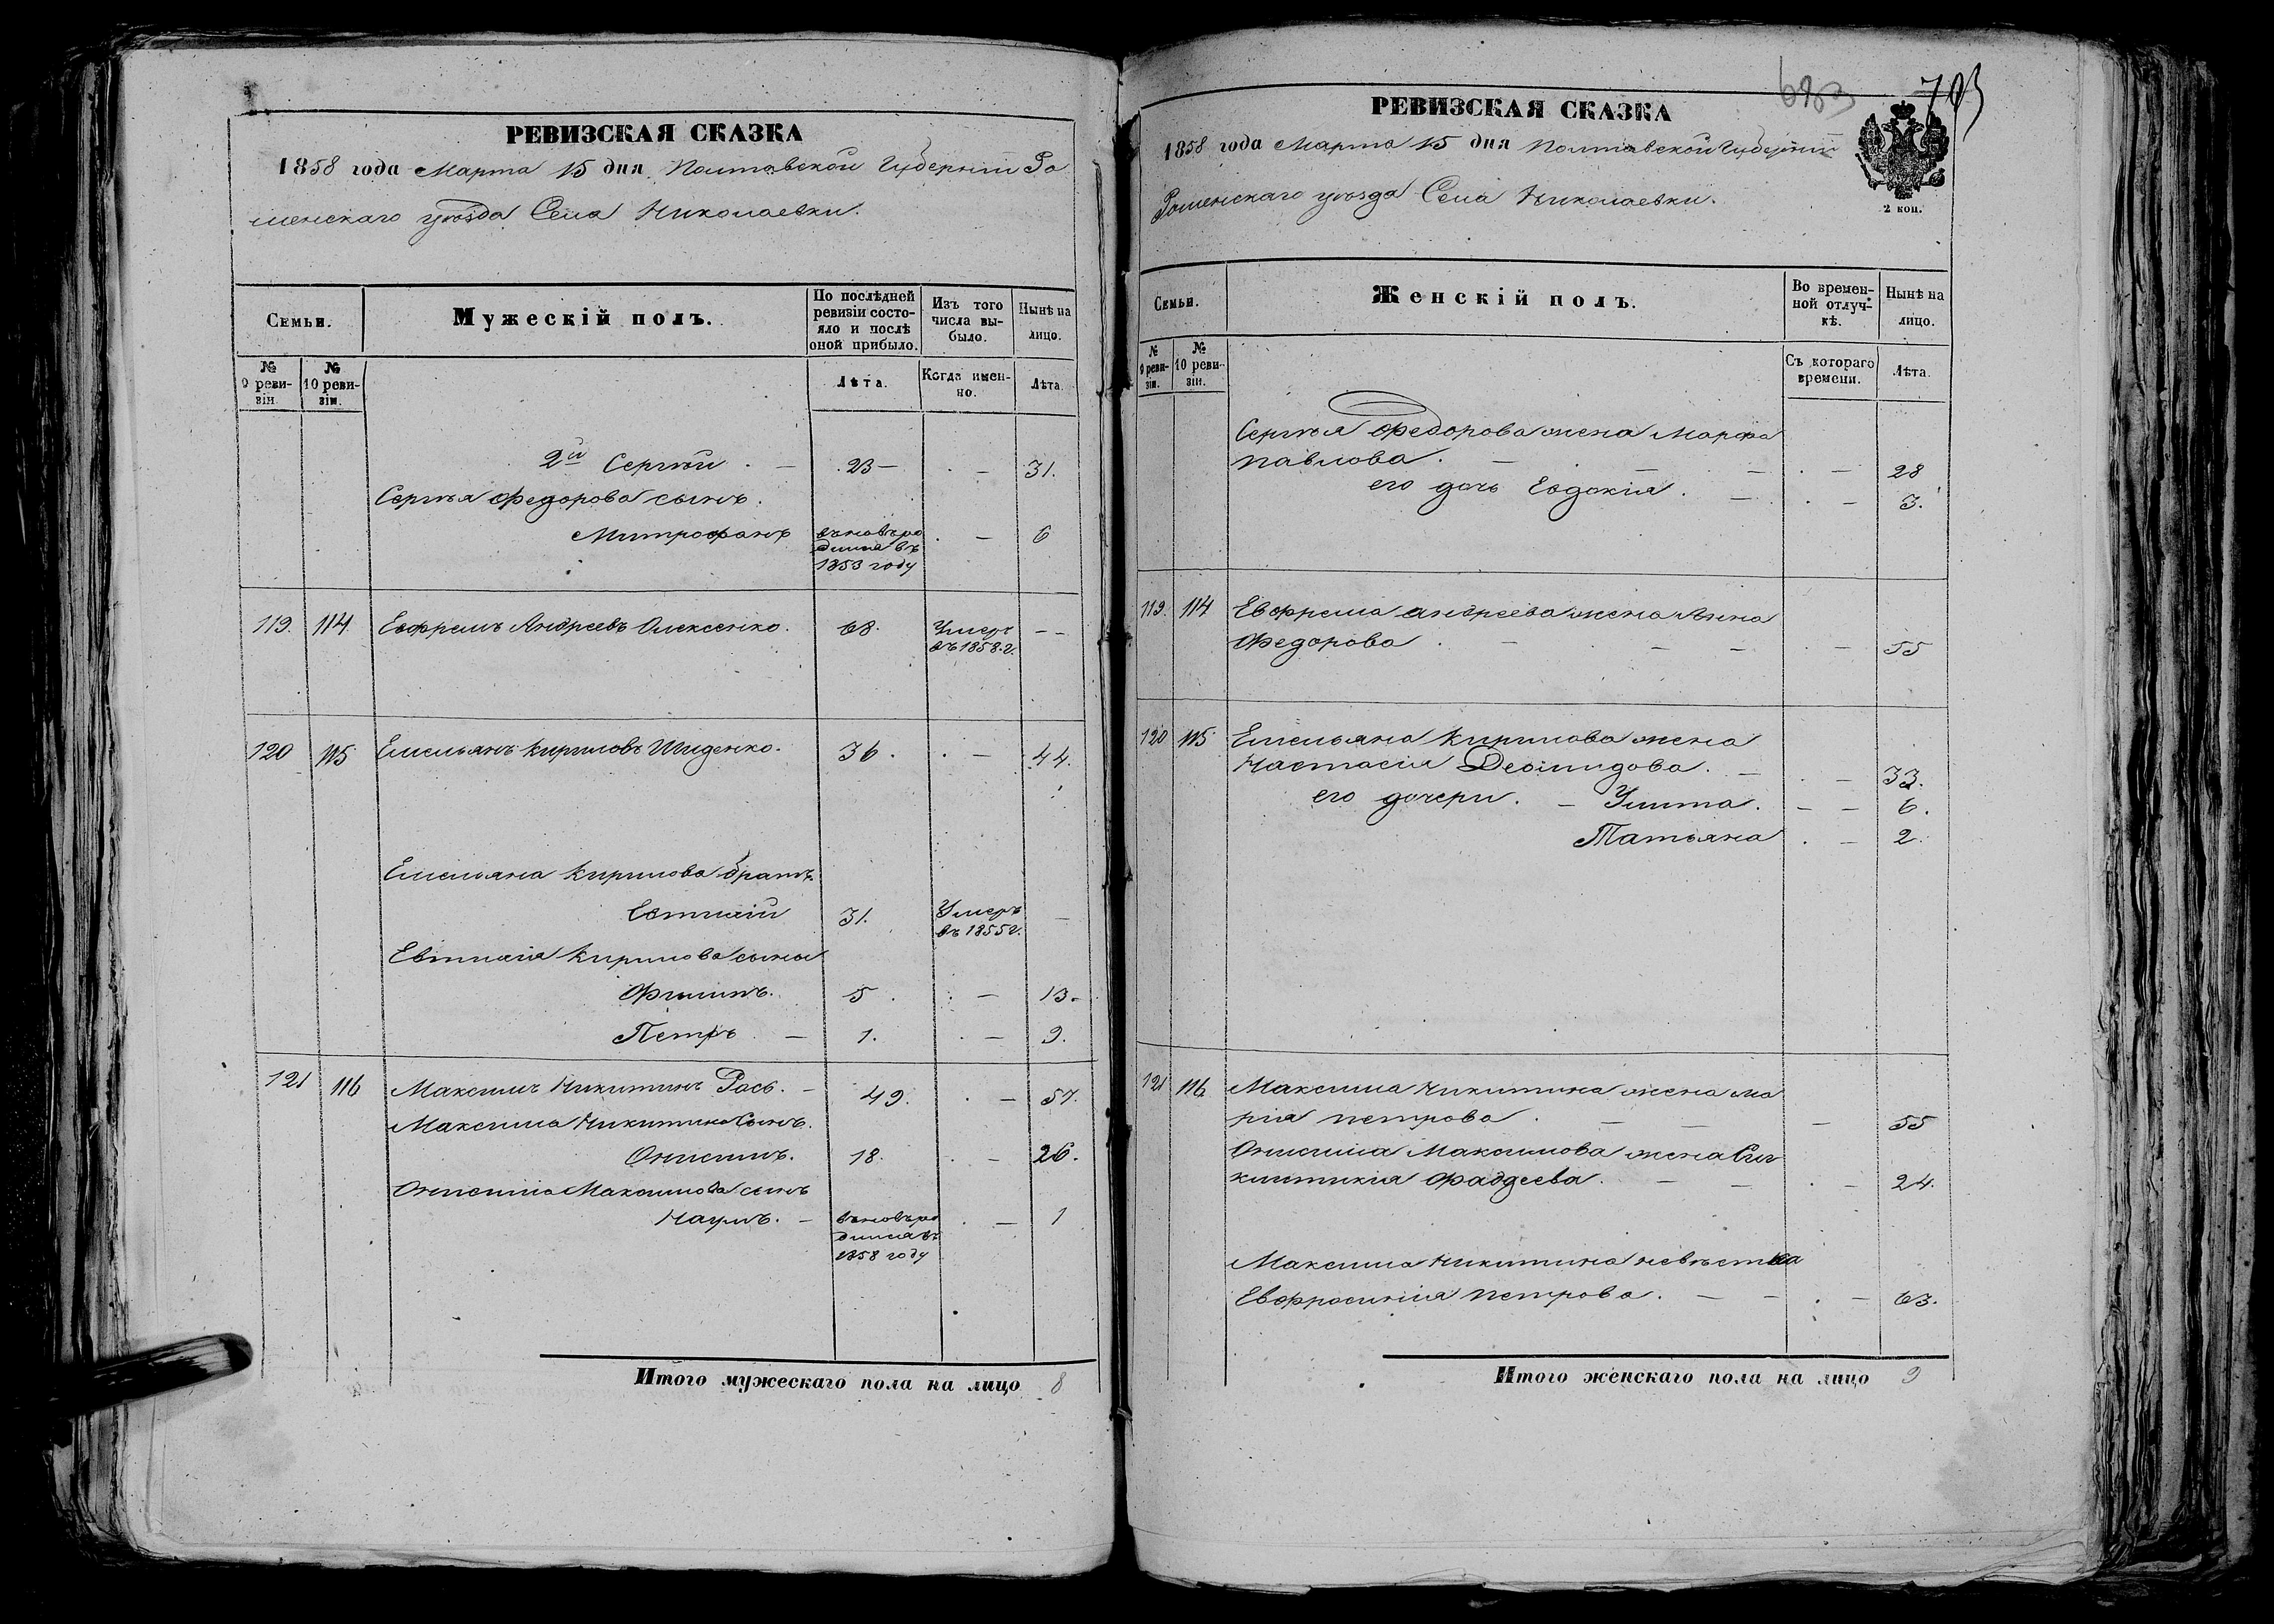 РЕВИЗСКАЯ СКАЗКА
1858 года Марта 15 дня Полтавской Губерніи Ро
менскаго уѣзда Села Николаевки.
Семьи.
Мужескій полъ.
По послѣдней
ревизіи состо-
яло и послѣ
оной прибыло.
Изъ того
числа вы-
было.
Нынѣ на
лицо.
№
9 реви-
зіи.
№
10 реви-
зіи.
Лѣта.
Когда имен-
но.
Лѣта.
2й Сергѣй . — 23 — . — 31.
Сергѣя Федорова сынъ.
Митрофанъ вновь ро . — 6
дился въ
1853 году
119. 114 Евфремъ Андреевъ Олексенко. 68. Умеръ — —
въ 1858.г.
120 115 Емельянъ Кириловъ Шиденко. 36. . — 44.
Емельяна Кирилова братъ
Евтихій 31. Умеръ —
въ 1855г.
Евтихія Кирилова сыны
Филипъ. 5. . — 13.
Петръ — 1. . — 9.
121 116 Максимъ Никитинъ Рось. — 49. . — 57.
Максима Никитина Сынъ.
Онисимъ. 18. . — 26.
Онисима Максимова сынъ
Наумъ. — вновь ро . — 1
дился въ
1858 году
Итого мужескаго пола на лицо 8
683 703
РЕВИЗСКАЯ СКАЗКА
1858 года Марта 15 дня Полтавской Губерніи
Роменскаго уѣзда Села Николаевки.
2 коп.
Семьи.
Женскій полъ.
Во времен-
ной отлуч-
кѣ.
Нынѣ на
лицо.
№
9 реви-
зіи.
№
10 реви-
зіи.
Съ котораго
времени.
Лѣта.
Сергѣя Федорова жена Марфа
Павлова. — — — . — 28
его дочь Евдокія. — . — 3.
119. 114 Евфрема Андреева жена Анна
Федорова . — — — . — 55
120 115 Емельяна Кирилова жена
Настасія Деомидова. — . — 33.
его дочери. — Улита. — — 6.
Татьяна . — 2.
121 116 Максима Никитина жена Ма
рія Петрова . — — — 55
Онисима Максимова жена Син
клитикія Фаддеева. — — . — 24.
Максима Никитина невѣстка
Евфросинія Петрова. — — . — 63.
Итого женскаго пола на лицо 9